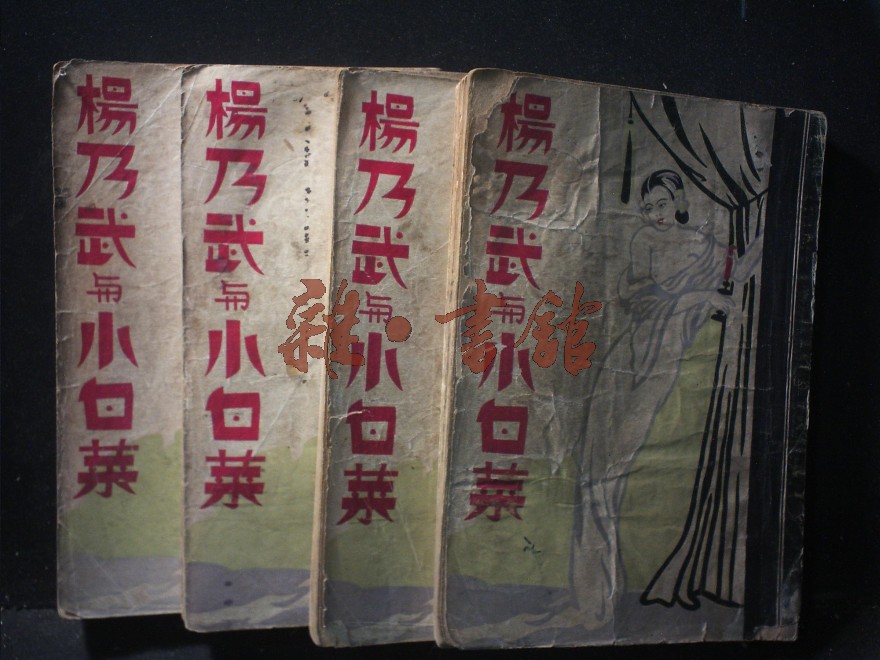 楊乃武与小白菜
楊乃武与小白菜
楊乃武与小白菜
楊乃武与小白菜
雜·書館